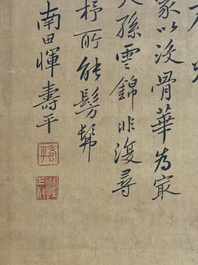 家以没骨華為㝡
天孫雲錦非復尋
杼所能髣髴
南田惲壽平